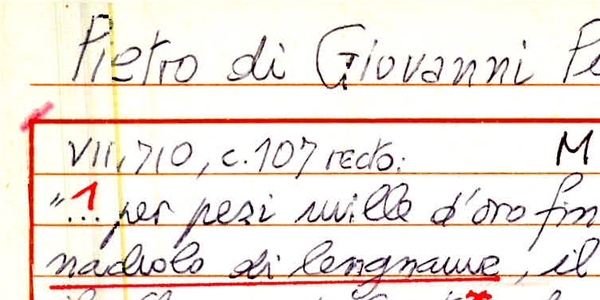 Pietro di Giovanni
VII, 710, c. 107 recto: M
"1... per pezi mille d'oro fin
di lengname, il